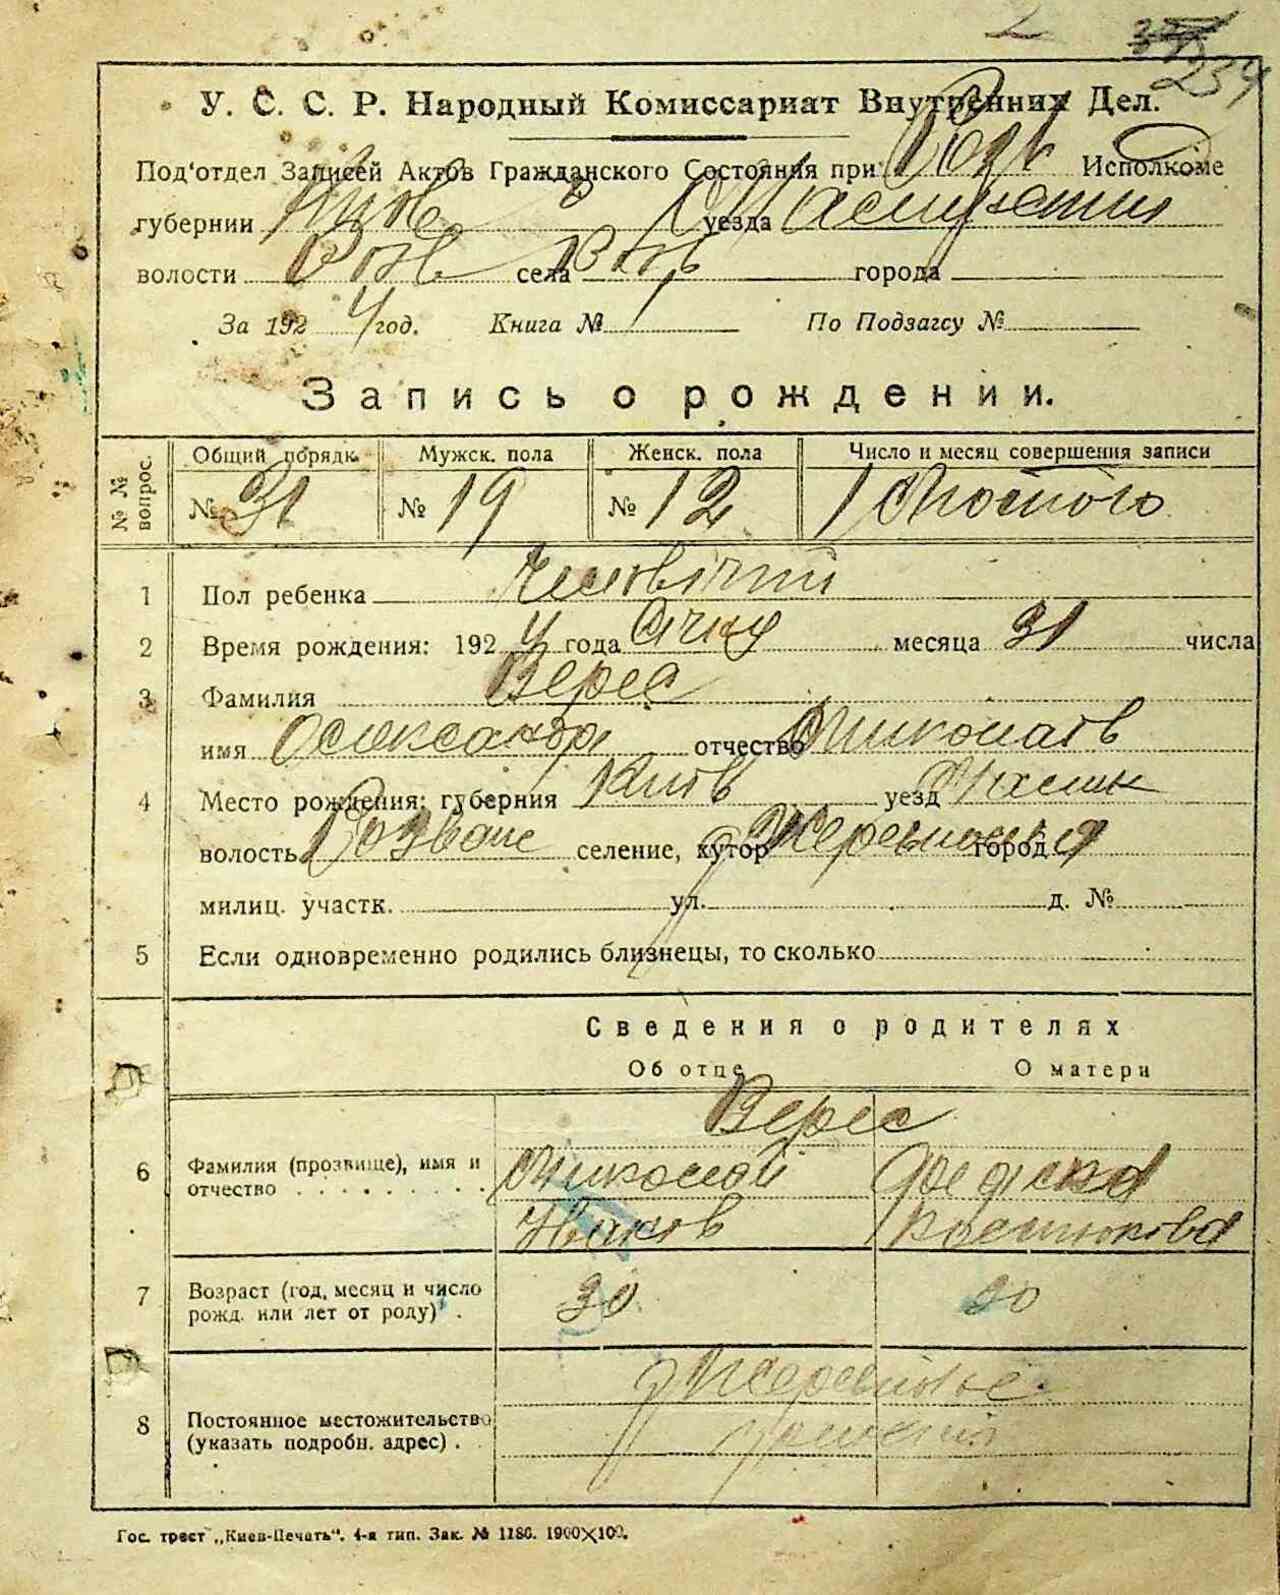 2
234
У. С. С. Р. Народный Комиссариат Внутренних Дел.
Под'отдел Записей Актов Гражданского Состояния при Розв Исполкоме
губернии Київ уезда
волости Розв села города
За 1924 год. Книга № По Подзагсу №
Запись о рождении.
№ № вопрос. Общий порядк. Мужск. пола Женск. пола Число и месяц совершения записи
№ 31 № 19 № 12 1 Лютого
1 Пол ребенка Чоловічий
2 Время рождения: 1924 года Січня месяца 31 числа
3 Фамилия Верес
имя Олександр отчество Миколаїв
4 Место рождения: губерния Київ уезд
волость Розваж селение, хутор город
милиц. участк. ул. д. №
5 Если одновременно родились близнецы, то сколько
Сведения о родителях
Об отце О матери
Верес
6 Фамилия (прозвище), имя и Миколай
отчество Яков
7 Возраст (год, месяц и число 30 30
рожд. или лет от роду)
8 Постоянное местожительство
(указать подробн. адрес)
Гос. трест „Киев-Печать“. 4-я тип. Зак. № 1186. 1900X100.